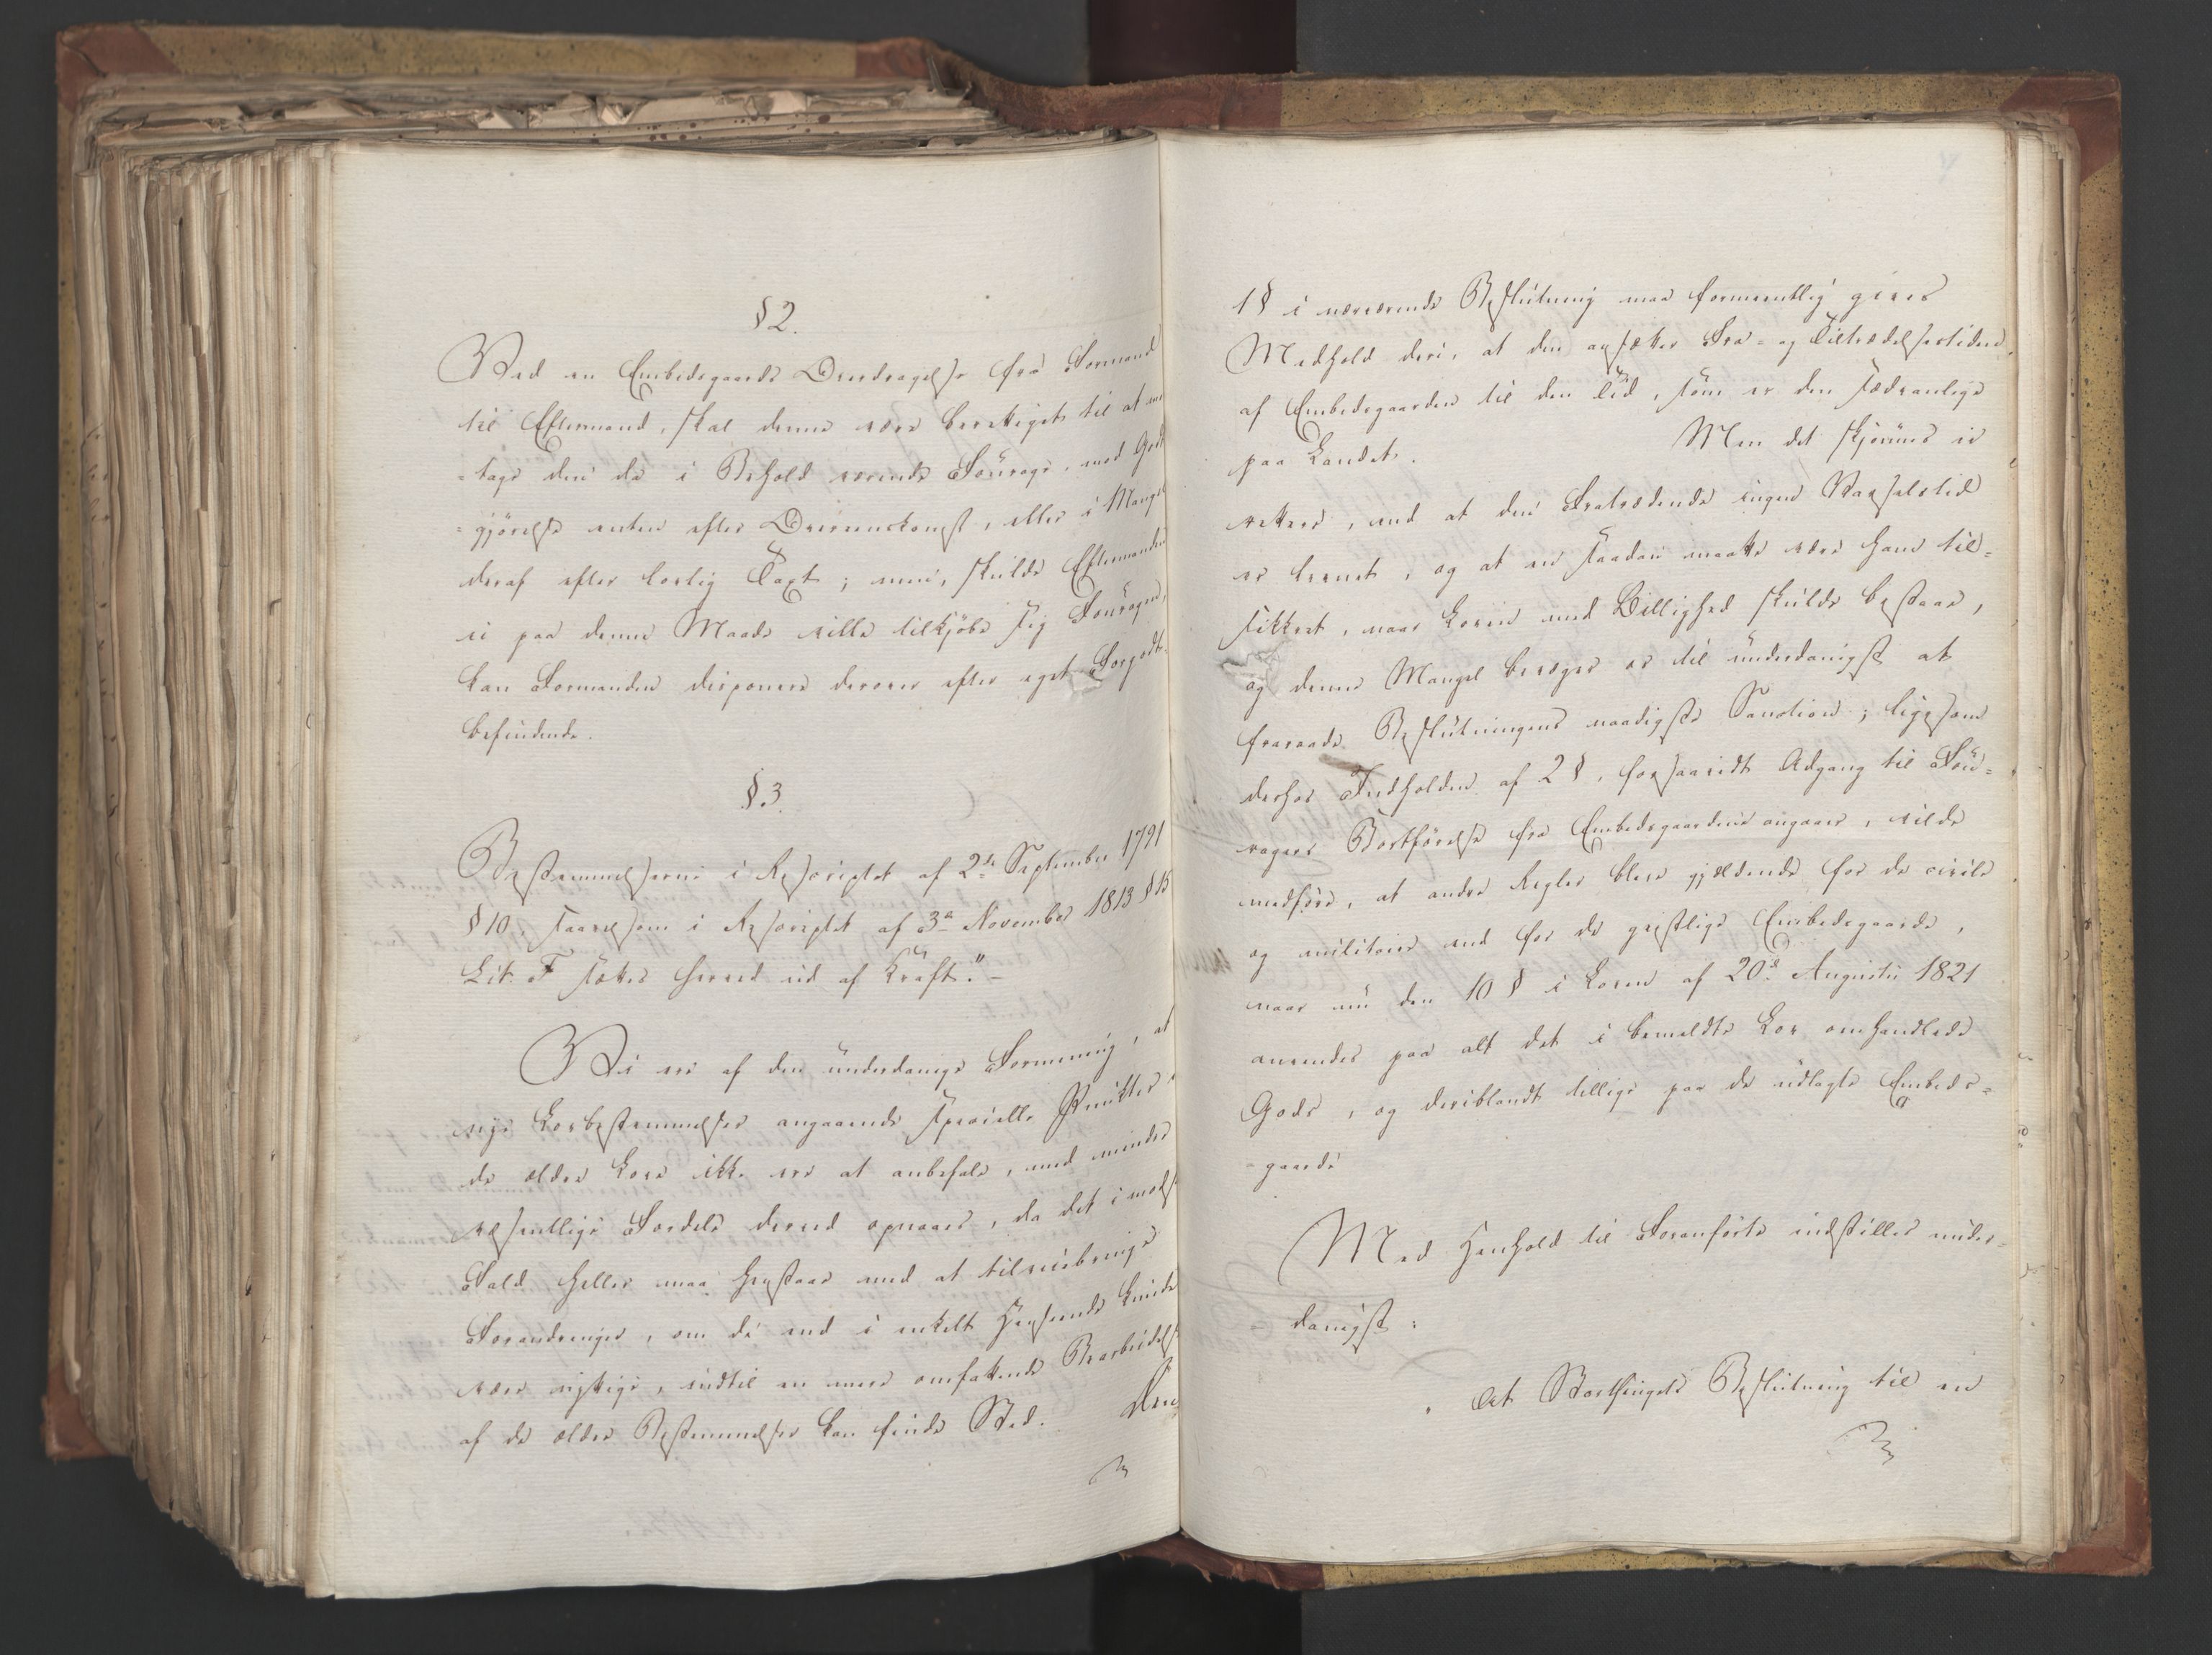 § 2.
Ved en Embedsgaards Overdragelse fra Formand
til Eftermand, skal denne være berettiget til at mod
=tage den da i Behold værende Fourage, mod Godt
=gjörelse enten efter Overeenskomst, eller i Mangel
deraf efter lovlig Taxt; men, skulde Eftermanden
ei paa denne Maade ville tilkjöbe sig Fouragen,
kan Formanden disponere derover efter eget Forgodt-
befindende.
§ 3.
Bestemmelserne i Rescriptet af 2de September 1791
§ 10, saavelsom i Rescriptet af 3die November 1813 § 15
Lit. F sættes herved ud af Kraft." –
Vi ere af den underdanige Formening, at
nye Lovbestemmelser angaaende specielle Punkter i
de ældre Love ikke ere at anbefale, med mindre
væsentlige Fordele derved opnaaes, da det i modsat
Fald heller maa henstaae med at tilveiebringe
Forandringer, om de end i enkelt Henseende kunde
være nyttige, indtil en mere omfattende Bearbeidelse
af de ældre Bestemmelser kan finde Sted. Den
1 § i nærværende Beslutning maa formeentlig gives
Medhold deri, at den ansætter Fra- og Tiltrædelsestiden
af Embedsgaarden til den Tid, som er den sædvanlige
paa Landet. Men det skjønnes ei
rettere, end at den Fratrædende ingen Varselstid
er levnet, og at en saadan maatte være ham til=
sikkret, naar Loven med Billighed skulde bestaae,
og denne Mangel bevæger os til underdanigst at
fraraade Beslutningens naadigste Sanction; ligesom
derhos Indholden af 2 §, forsaavidt Adgang til Fou=
ragens Bortförelse fra Embedsgaardene angaaer, vilde
medföre, at andre Regler bleve gjældende for de civile
og militaire end for de geistlige Embedsgaarde,
naar nu den 10 § i Loven af 20de Augusti 1821
anvendes paa alt det i bemeldte Lov omhandlede
Gods, og deriblandt tillige paa de udlagte Embeds=
=gaarde
Med Henhold til Foranförte indstilles under=
= danigst:
" At Storthingets Beslutning til en